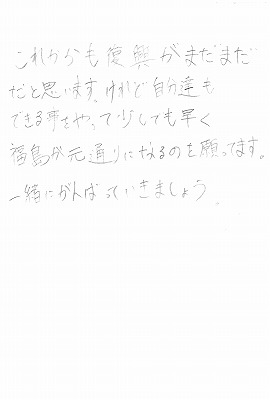 これからも復興がまだまだ
だと思います。けれど自分達も
できる事をやって少しでも早く
福島が元通りになるのを願ってます。
一緒にがんばっていきましょう。